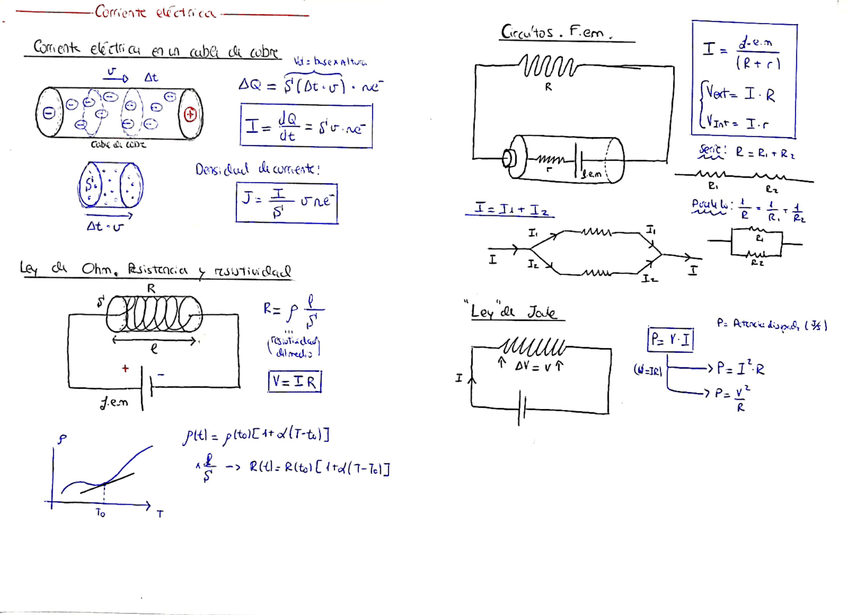 Corriente eléctrica
Corriente eléctrica en un cable de cobre
v Δt
cable de cobre
Vol = base x altura
ΔQ = S (Δt · v) · n e⁻
I = dQ/dt = S v · n e⁻
S
Δt · v
Densidad de corriente:
J = I/S v n e⁻
Ley de Ohm. Resistencia y resistividad
R
S
l
+ -
f.e.m
R = ρ l/S
(resistividad del medio)
V = I R
ρ
T₀ T
ρ(t) = ρ(t₀) [1 + α(T-t₀)]
x l/S → R(t) = R(t₀) [1 + α(T-T₀)]
Circuitos. F.em.
R
r f.e.m
I = f.e.m/(R + r)
Vext = I · R
VInt = I · r
Serie: R = R₁ + R₂
R₁ R₂
Paralelo: 1/R = 1/R₁ + 1/R₂
R₁
R₂
I = I₁ + I₂
I I₁ I₁
I₂ I₂ I
"Ley" de Joule
I
↑ ΔV = V ↑
P = Potencia disipada (J/s)
P = V · I
(V = IR)
→ P = I² · R
→ P = V²/R